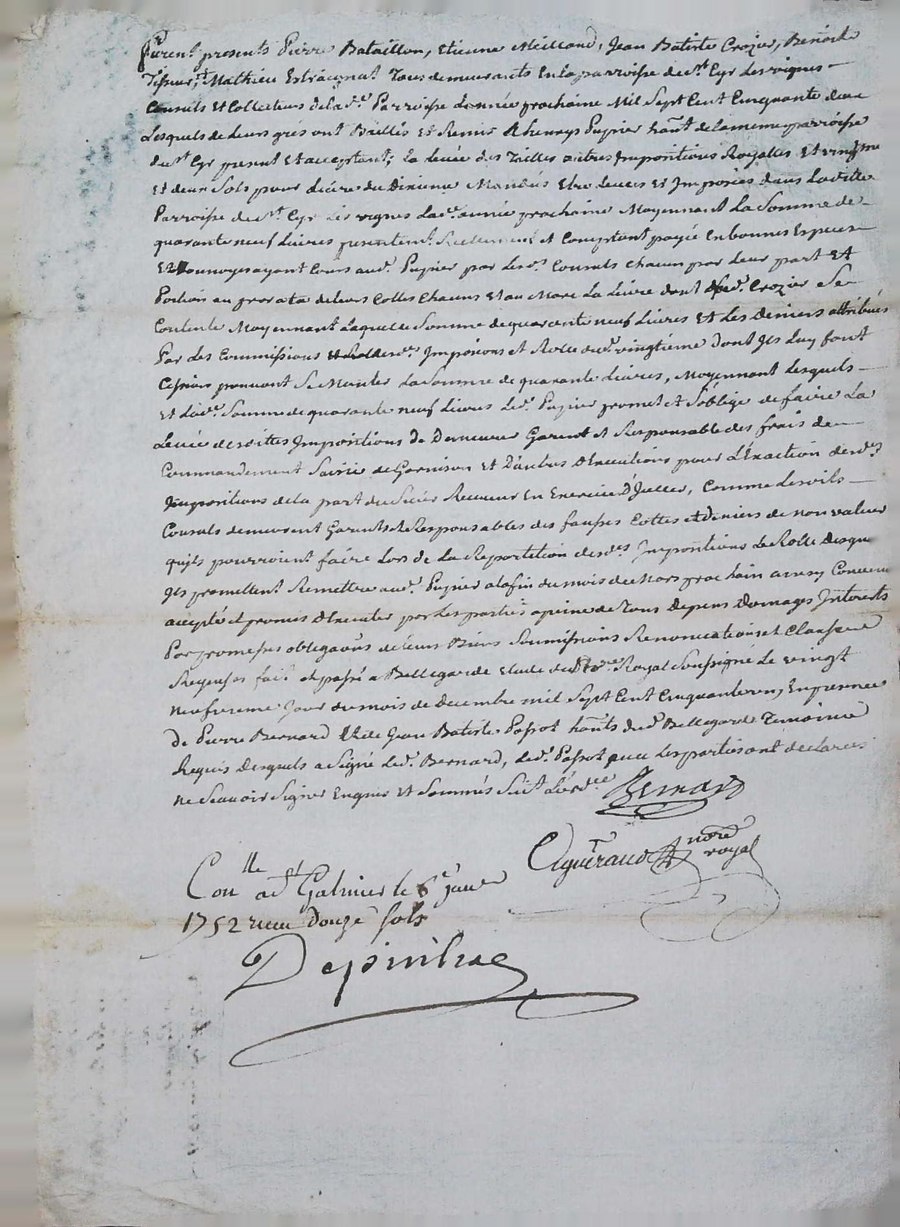 furent presents Pierre Bataillon, Etienne Meilland, Jean Batiste Crozier, Benoist
Tisseur, et Mathieu Estraignat Tous demeurants En la parroisse de st Cyr Les vignes
Consuls Et Collecteurs de lad.e Parroisse Lannée prochaine Mil Sept Cent Cinquante deux
Lesquels de Leurs grés ont Baillés Et Remis A henrys Pupier ha.nt de la meme parroisse
de st Cyr present Et acceptant, La levée des Tailles autres Impositions Royalles Et vingtme
Et deux Sols pour Livre du Dixieme Mandés Etre levées Et Imposées dans La ditte
Parroisse de st Cyr Les vignes Lad.e année prochaine Moyennant La Somme de
quarante neuf Livres presentemt. Reellement et Comptant payée En bonnes Especes
Et monnoye ayant Cours aud. Pupier par les d.s Consuls Chacun pour Leur part Et
Portion au prorata de leurs Cottes Chacuns Et au Marc La Livre dont led. Crozier Se
Contente Moyennant Laquelle Somme de quarante neuf Livres Et Les Deniers attribués
Par Les Commissions Impositions et Rolle du vingtieme Dont Ils Luy font
Cession pouvant Se Monter La Somme de quarante Livres, Moyennant Lesquels
Et Lad.e Somme de quarante neuf Livres Led. Pupier promet et S'oblige de faire La
Levée desdittes Impositions De Demeurer Garent et Responsable des frais de
Commandement Saisie de Garnison Et D'autres Executions pour L'Exaction desd.es
Impositions de la part du Sieur Receveur En Exercice D'Icelles, Comme Lesdits
Consuls demeurent Garents et Responsables des fausses Cottes et deniers de non valeur
quils pourroient faire Lors de La Repartition desd.es Impositions Le Rolle Desque
Ils promettent Remettre aud. Pupier a la fin du mois de Mars prochain ainsy Convenu
accepté et promis D'Executer par Les parties a peine de Tous Depens Domages Interests
Par promesses obligaons de leurs Biens Soumissions Renonciations et Clauses
Requises fait et passé a Bellegarde Etude du Nore Royal Soussigné Le vingt
neufvieme Jour du mois de Decembre mil Sept Cent Cinquante un, En presence
De Pierre Bernard Et de Jean Batiste Passot ha.nts dud. Bellegarde Temoins
Requis Desquels a Signé Led. Bernard, Led. Passot ny Les parties ont declarés
ne Scavoir Signer Enquis Et Sommés Suivt L'ord.ce
Bernard
nore
royal
Conlle a st Galmier le 6e janv
1752 recu douze sols